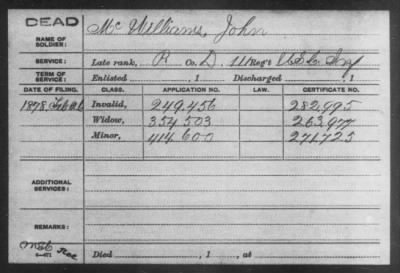 DEAD
NAME OF SOLDIER: McWilliams, John
SERVICE: Late rank, P Co. D, 11 Reg't U.S.C. Inf
TERM OF SERVICE: Enlisted , 1 Discharged , 1
DATE OF FILING. CLASS. APPLICATION NO. LAW. CERTIFICATE NO.
1878, Feb Invalid, 249,456 282,995
Widow, 354 503 263,977
Minor, 414 600 271,725
ADDITIONAL SERVICES:
REMARKS:
Died , 1 , at